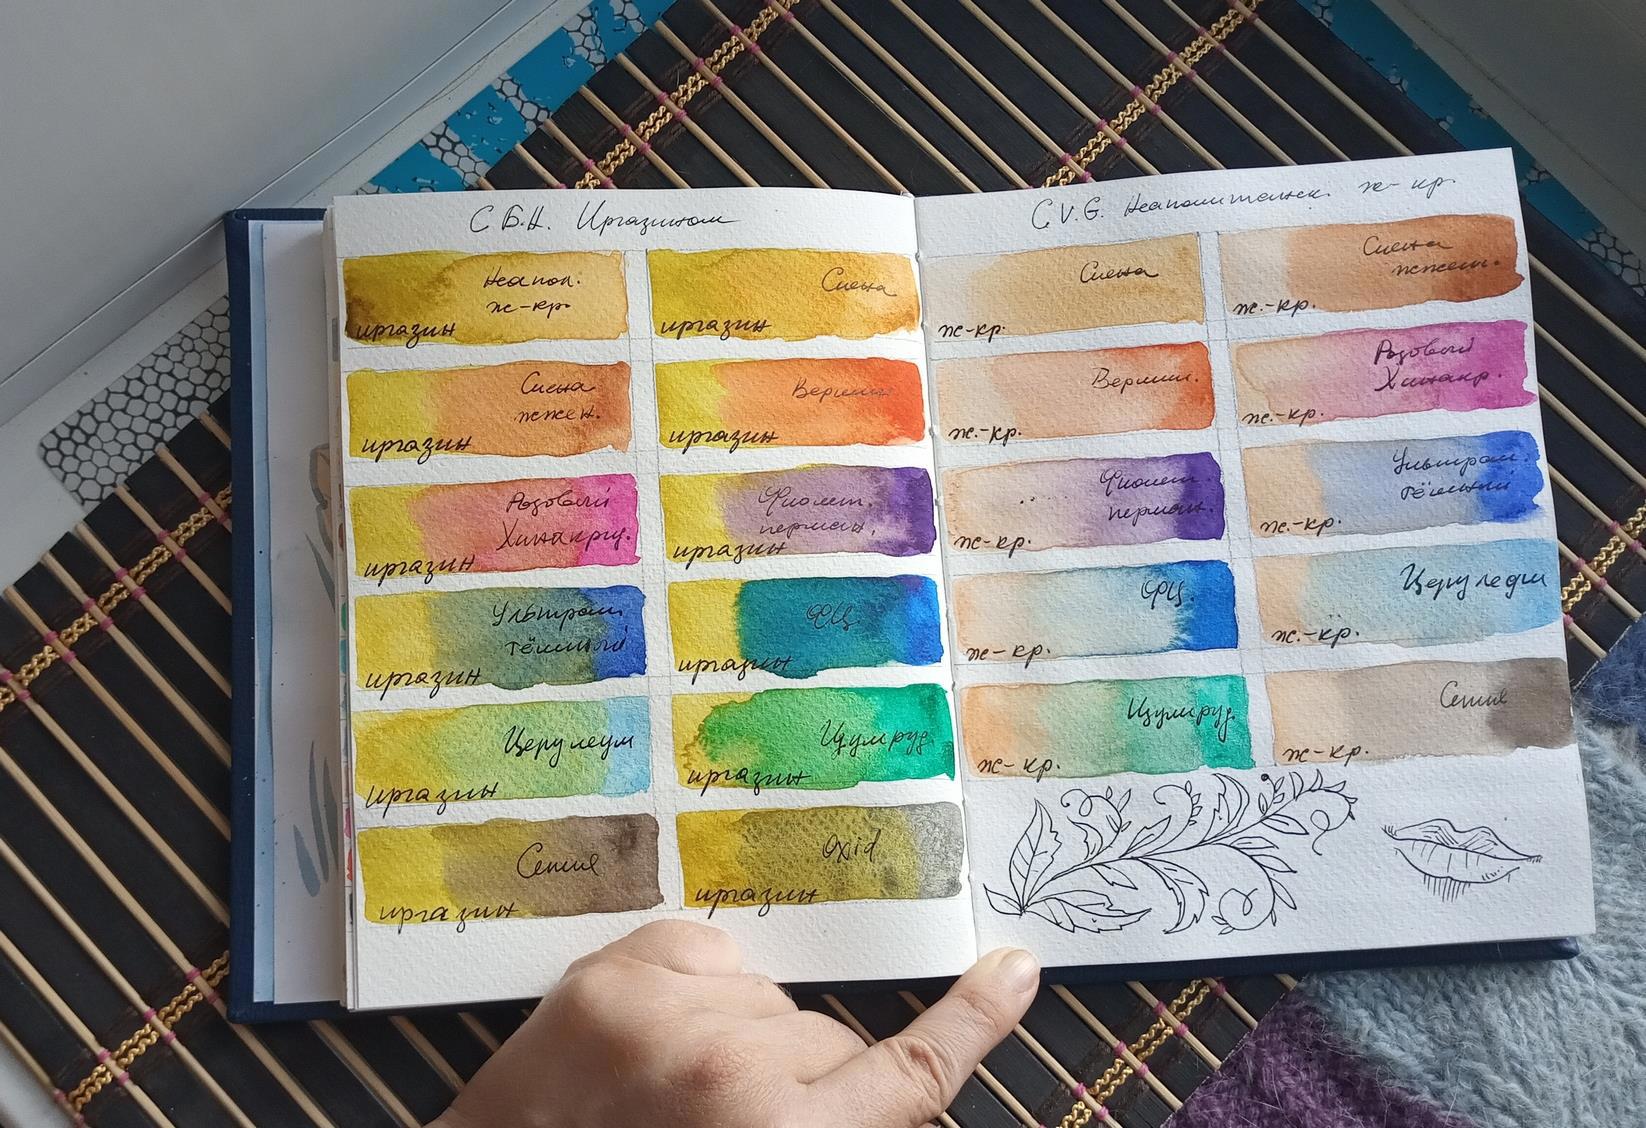 С Б.Н. Иргазином
Неапол.
ж-кр.
иргазин
Сиена
иргазин
Сиена
жжен.
иргазин
иргазин
Розовый
Хинакрид.
иргазин
Фиолет.
перман.
иргазин
Ультрам.
тёмный
иргазин
ФЦ.
иргазин
Церулеум
иргазин
Изумруд
иргазин
Сепия
иргазин
Oxid
иргазин
С V.G. Неаполитанск. ж-кр.
Сиена
ж-кр.
Сиена
жжен.
ж-кр.
Вермил.
ж.-кр.
Розовый
Хинакр.
ж.-кр.
Фиолет.
перман.
ж-кр.
Ультрам.
тёмный
ж.-кр.
ФЦ.
ж-кр.
Церулеум
ж.-кр.
Изумруд
ж-кр.
Сепия
ж-кр.